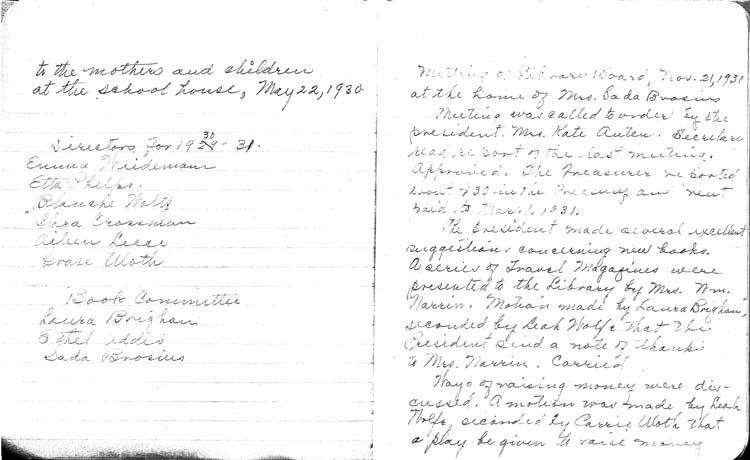 to the mothers and children
at the school house, May 22, 1930.
Directors for 1929 30 - 31.
Emma Weidemann
Etta Phelps.
Blanche Woltz
Clara Crossman
Aileen Leese
Grase Woth
Book Committee
Laura Brighan
Ethel eddis
Sada Brosius
Meeting of Library Board, Nov. 21, 1931
at the home of Mrs. Sada Brosius
Meeting was called to order by the
president. Mrs. Kate Auten. Secretary
read report of the last meeting.
Approved. The Treasurer reported
about $30 in the Treasury and rent
paid to Mar. 1, 1931.
The President made several excellent
suggestions concerning new books.
A series of Travel Magazines were
presented to the Library by Mrs. Wm.
Narrin. Motion made by Laura Brighan,
seconded by Leah Wolfe that the
President send a note of thanks
to Mrs. Narrin. Carried
Ways of raising money were dis-
cussed. A motion was made by Leah
Wolfe, seconded by Carrie Woth that
a play be given to raise money